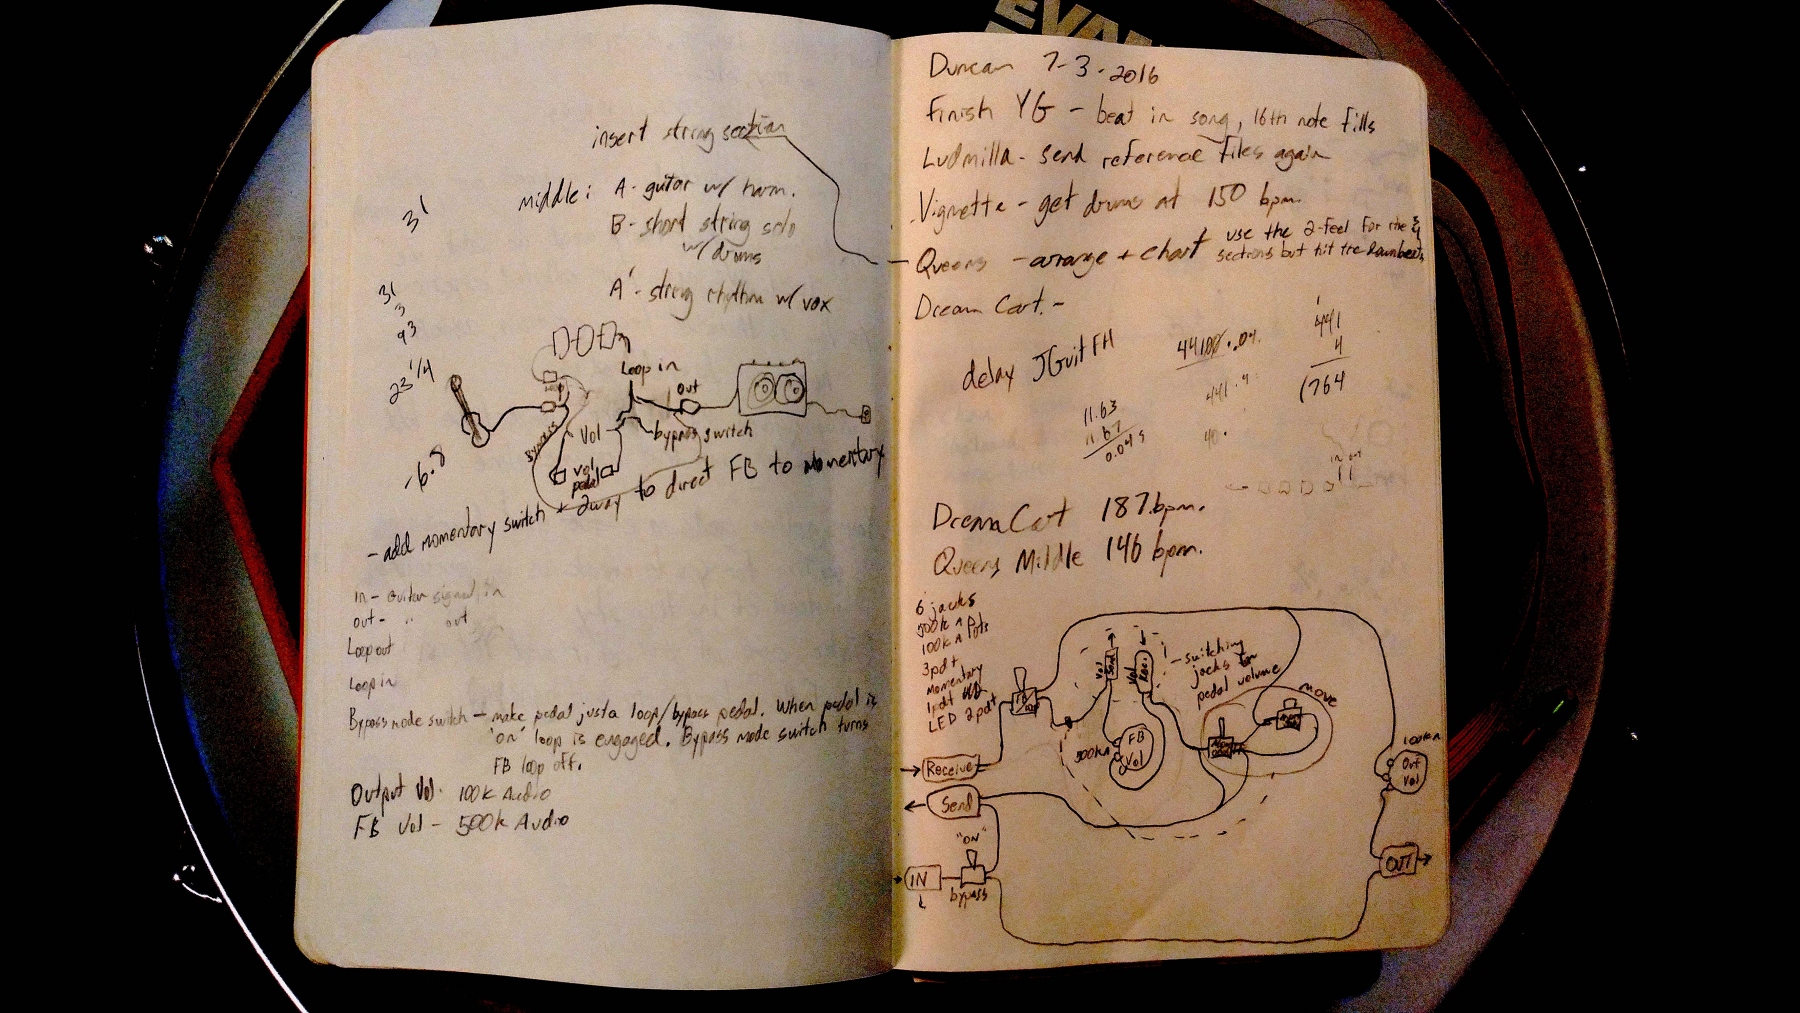 insert string section
middle: A - guitar w/ harm.
B - short string solo
w/ drums
A' - string rhythm w/ vox
31
31
3
93
23 1/4
-6.8
Loop in
Out
Vol
bypass switch
bypass
Vol
pedal
- add momentary switch + 2way to direct FB to momentary
in - Guitar signal in
out - " out
Loop out
Loop in
Bypass mode switch - make pedal just a loop/bypass pedal. When pedal is
'on' loop is engaged. Bypass mode switch turns
FB loop off.
Output Vol. 100k Audio
FB Vol - 500k Audio
EVA
Duncan 7-3-2016
Finish YG - beat in song, 16th note fills
Ludmilla - send reference files again
Vignette - get drums at 150 bpm.
Queens - arrange + chart use the 2-feel for the
sections but hit the downbeats
Dream Cart. -
delay JGuit FH
44100 . .04
441
4
1764
441 . 4
11.63
11.67
0.04s
40.
in out
Dream Cart 187 bpm.
Queens Middle 146 bpm.
6 jacks
500k A
100k A Pots
3pdt
momentary
1pdt
LED 2pdt
Vol
Send
Vol
Rec.
- switching
jacks for
pedal volume
move
FB
500kA
FB
Vol
100kA
Out
Vol
Receive
Send
"ON"
IN
bypass
OUT